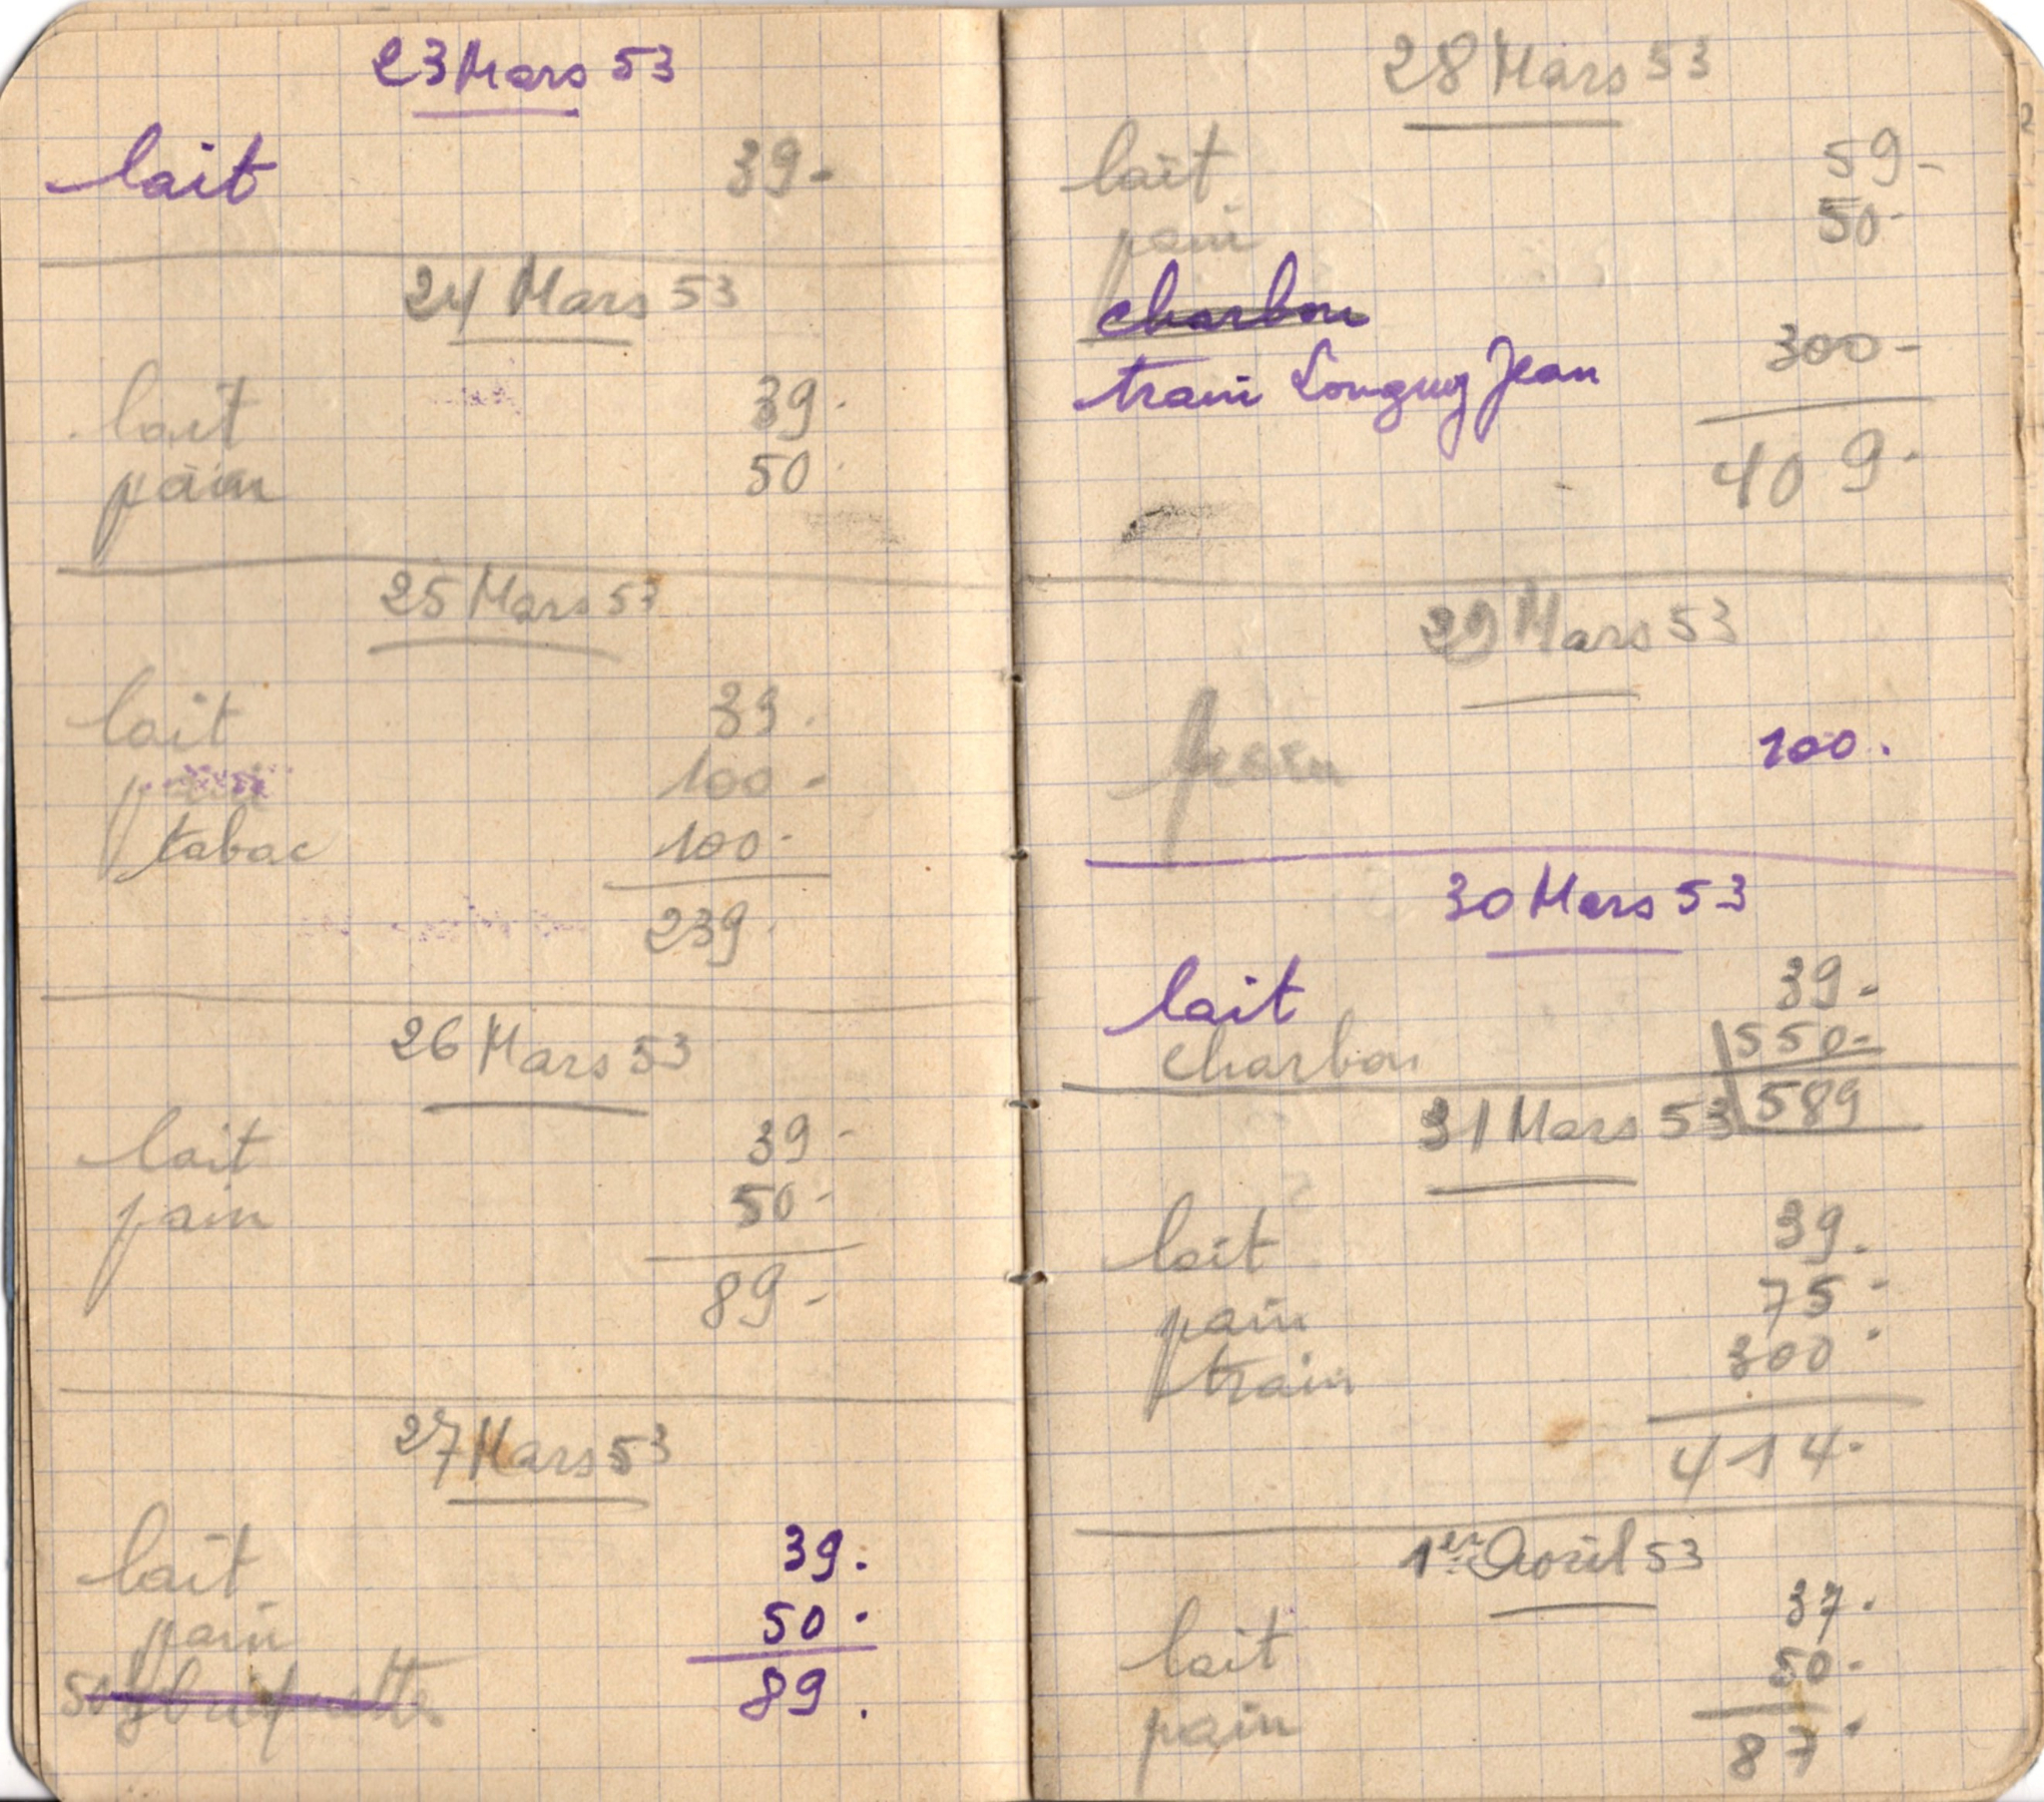 23 Mars 53
lait 39-
24 Mars 53
lait 39-
pain 50-
25 Mars 53
lait 39-
pain 100-
tabac 100-
239-
26 Mars 53
lait 39-
pain 50-
89-
27 Mars 53
lait 39.
pain 50.
89.
28 Mars 53
lait 59-
pain 50-
charbon
train Longuy Jean 300-
409.
29 Mars 53
pain 100.
30 Mars 53
lait 39-
charbon 550-
589
31 Mars 53
lait 39.
pain 75-
train 300-
414.
1er Avril 53
lait 37.
pain 50-
87.